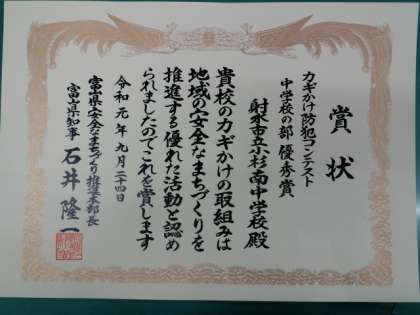 賞状
カギかけ防犯コンテスト
中学校の部 優秀賞
射水市立小杉南中学校 殿
貴校のカギかけの取組みは
地域の安全なまちづくりを
推進する優れた活動と認め
られましたのでこれを賞します
令和元年九月二十四日
富山県安全なまちづくり推進本部長
富山県知事 石井隆一